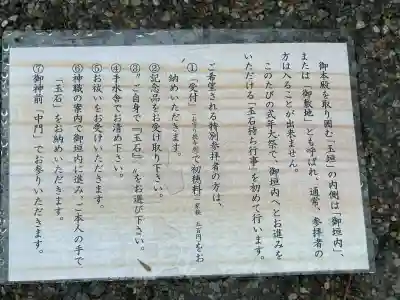 御本殿を取り囲む「玉垣」の内側は「御垣内」、
または「御敷地」とも呼ばれ、通常、参拝者の
方は入ることが出来ません。
このたびの式年大祭で、御垣内へとお進みを
いただける「玉石持ち行事」を初めて行います。
ご希望される特別参拝者の方は、
①「受付」で初穂料をお
納めいただきます。
②記念品をお受け取り下さい。
③ご自身で『玉石』をお選び下さい。
④手水舎でお清め下さい。
⑤お祓いをお受けいただきます。
⑥神職の案内で御垣内に進み、ご本人の手で
「玉石」をお納めいただきます。
⑦御神前「中門」でお参りいただきます。